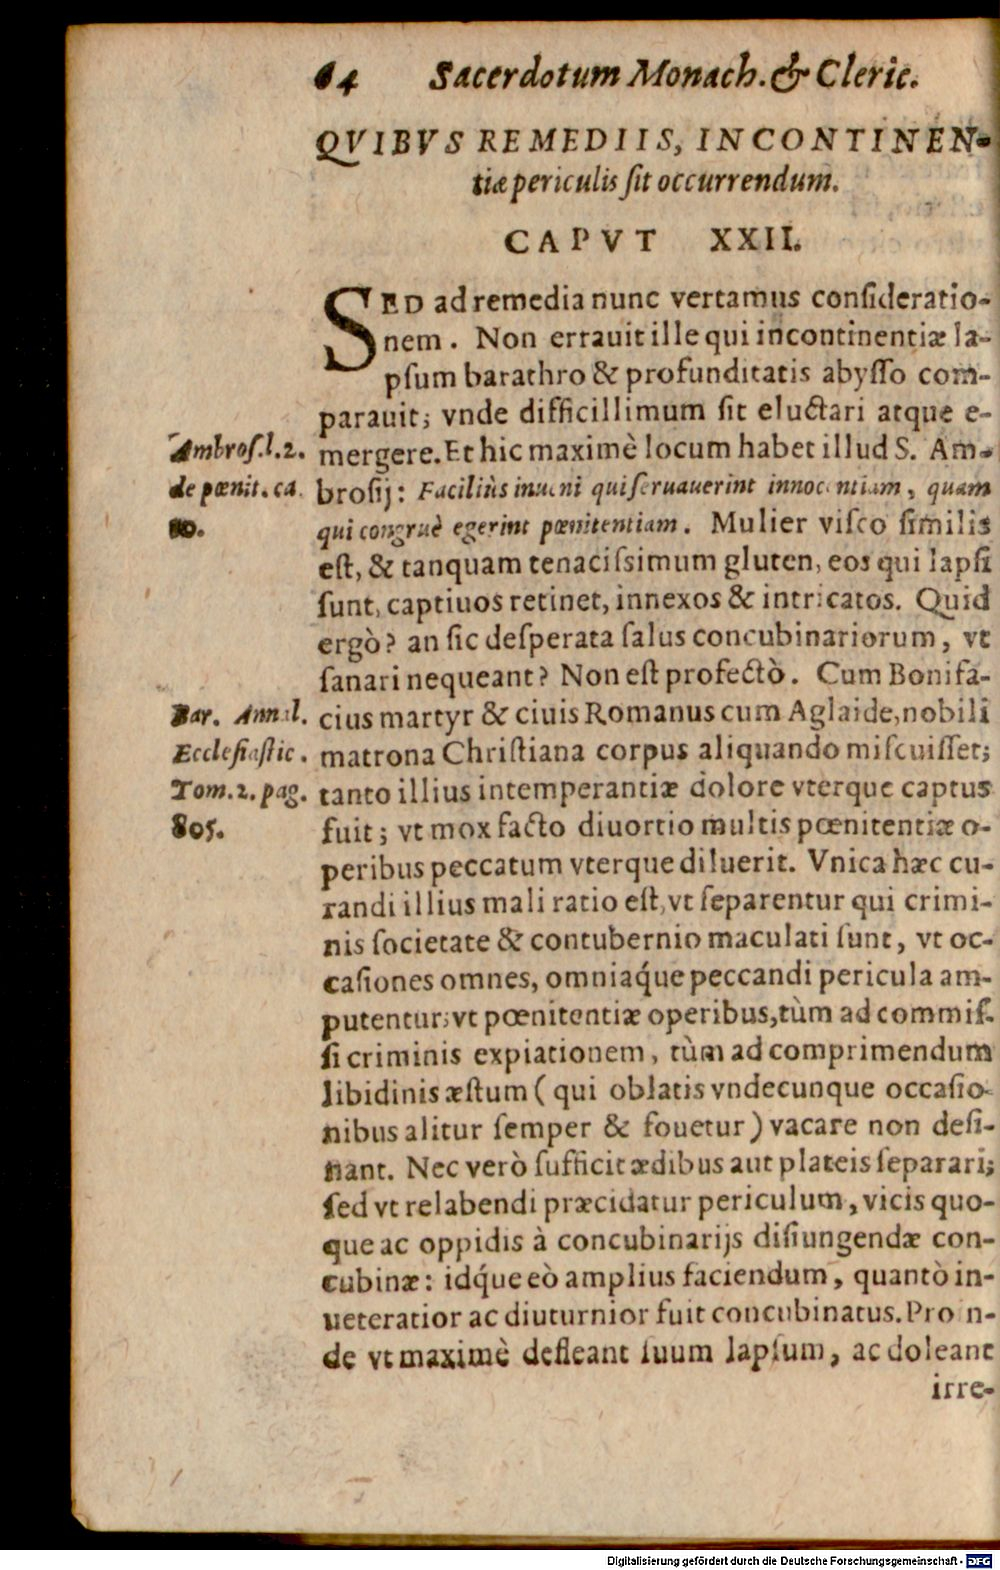 64 Sacerdotum Monach. & Cleric.
QVIBVS REMEDIIS, INCONTINEN-
tiæ periculis ſit occurrendum.
CAPVT XXII.
SED ad remedia nunc vertamus conſideratio-
nem. Non errauit ille qui incontinentiæ la-
pſum barathro & profunditatis abyſſo com-
parauit; vnde difficillimum ſit eluctari atque e-
mergere. Et hic maximè locum habet illud S. Am-
broſij: Faciliùs inueni qui ſeruauerint innocentiam, quam
qui congruè egerint pœnitentiam. Mulier viſco ſimilis
eſt, & tanquam tenaciſsimum gluten, eos qui lapſi
ſunt, captiuos retinet, innexos & intricatos. Quid
ergò? an ſic deſperata ſalus concubinariorum, vt
ſanari nequeant? Non eſt profectò. Cum Bonifa-
cius martyr & ciuis Romanus cum Aglaide, nobili
matrona Chriſtiana corpus aliquando miſcuiſſet;
tanto illius intemperantiæ dolore vterque captus
fuit; vt mox facto diuortio multis pœnitentiæ o-
peribus peccatum vterque diluerit. Vnica hæc cu-
randi illius mali ratio eſt, vt ſeparentur qui crimi-
nis ſocietate & contubernio maculati ſunt, vt oc-
caſiones omnes, omniaq́ue peccandi pericula am-
putentur; vt pœnitentiæ operibus, tùm ad commiſ-
ſi criminis expiationem, tùm ad comprimendum
libidinis æſtum ( qui oblatis vndecunque occaſio-
nibus alitur ſemper & fouetur ) vacare non deſi-
nant. Nec verò ſufficit ædibus aut plateis ſeparari;
ſed vt relabendi præcidatur periculum, vicis quo-
que ac oppidis à concubinarijs diſiungendæ con-
cubinæ: idq́ue eò amplius faciendum, quantò in-
ueteratior ac diuturnior fuit concubinatus. Pro n-
de vt maximè defleant ſuum lapſum, ac doleant
irre-
Ambroſ. l. 2.
de pœnit. ca.
10.
Bar. Annal.
Eccleſiaſtic.
Tom. 2. pag.
805.
Digitalisierung gefördert durch die Deutsche Forschungsgemeinschaft - DFG